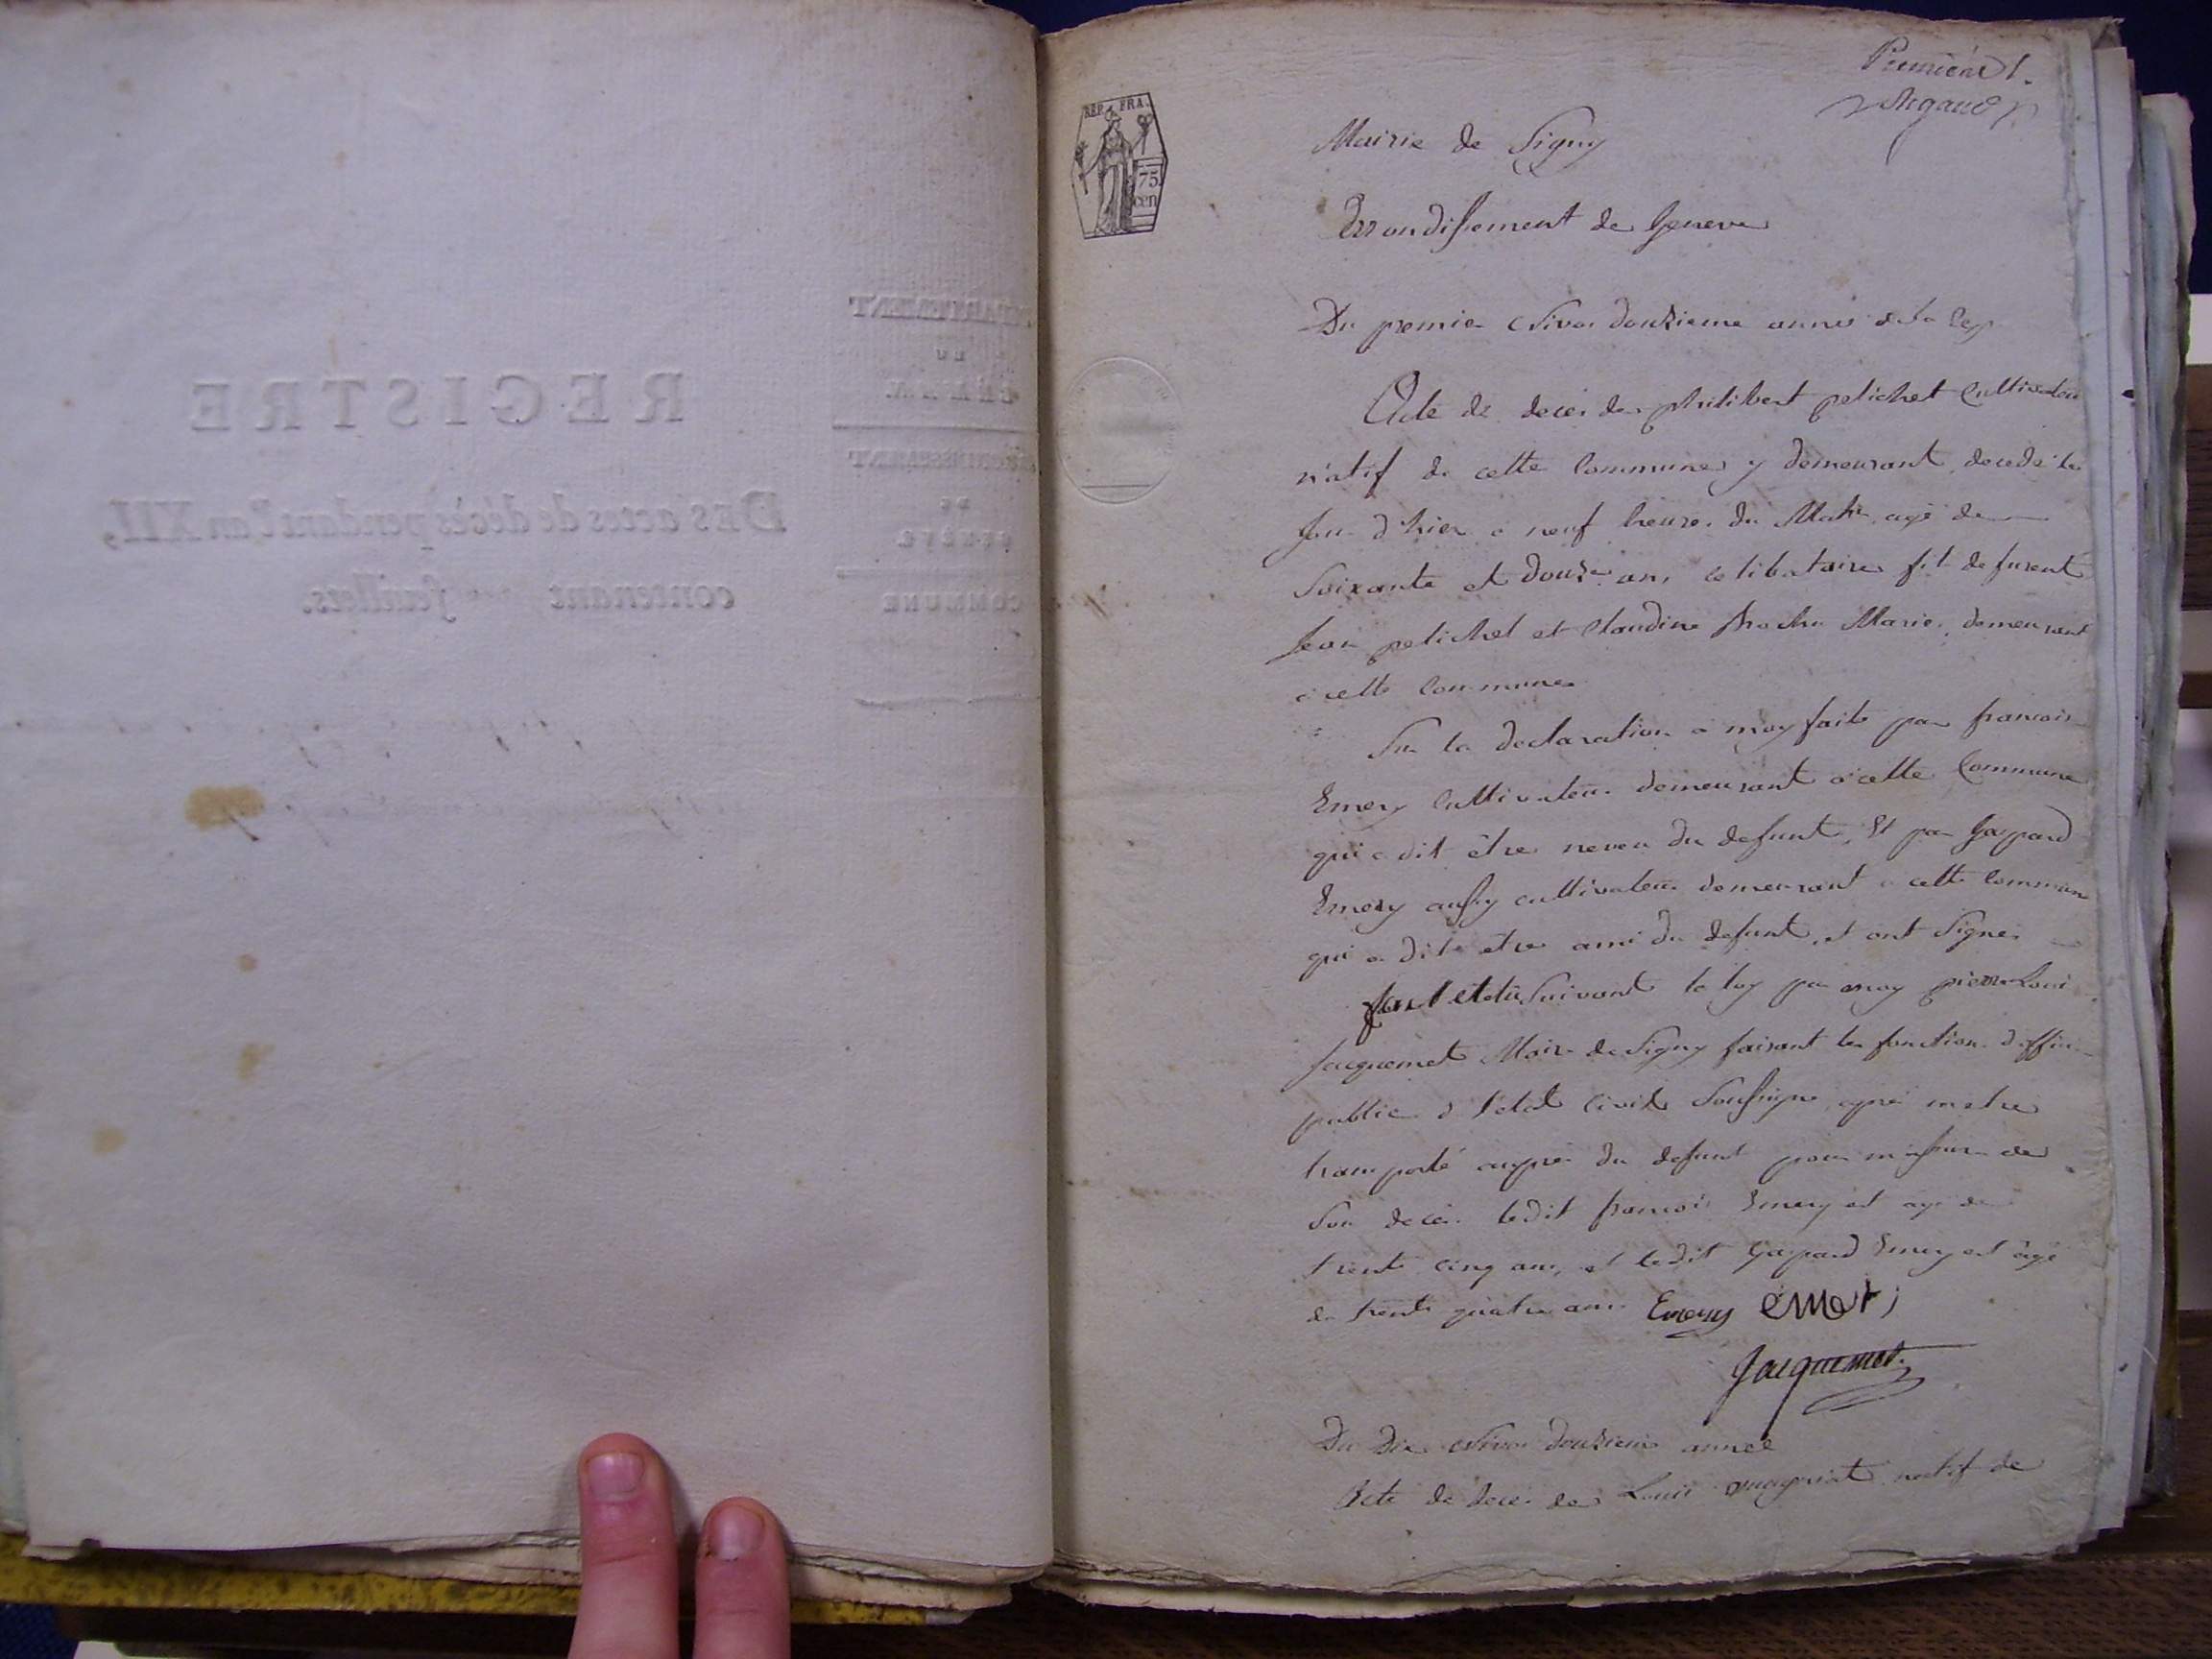 DÉPARTEMENT
DU
LÉMAN.
ARRONDISSEMENT
DE
GENÈVE
COMMUNE
REGISTRE
DES actes de décès pendant l'an XII,
contenant feuillets.
REP. FRA.
75
cen
Premiere
Argand
Mairie de Signy
Arrondissement de Geneve
Du premie Nivos douzieme anneé de la Rep
Acte de deces de philibert pelichet Cultivateur
natif de cette Commune y demeurant decedé le
Jour d'hier a neuf heures du Matin agé de
Soixante et douze ans celibataire fils defurent
Jean pelichet et Claudine Mariés demeurant
a cette Commune
Sur la declaration a moy faite par francois
Emery Cultivateur demeurant a cette Commune
qui a dit être neveu du defunt, Et par Gaspard
Emery aussy cultivateur demeurant a cette Commune
qui a dit etre ami du defunt, et ont Signés
Suivant la loy par moy pierre Louis
Jacquemet Maire de Signy faisant les fonction d'officier
public d l'etat Civil Soussigné apré metre
transporté aupres du defunt pour massurer de
Son deces ledit francois Emery est agé de
trente cinq ans, et ledit Gaspard Emery est âgé
de trente quatre ans Emery emeri
Jacquemet
Du Dix Nivos douzieme anneé
Acte de deces de Louis natif de